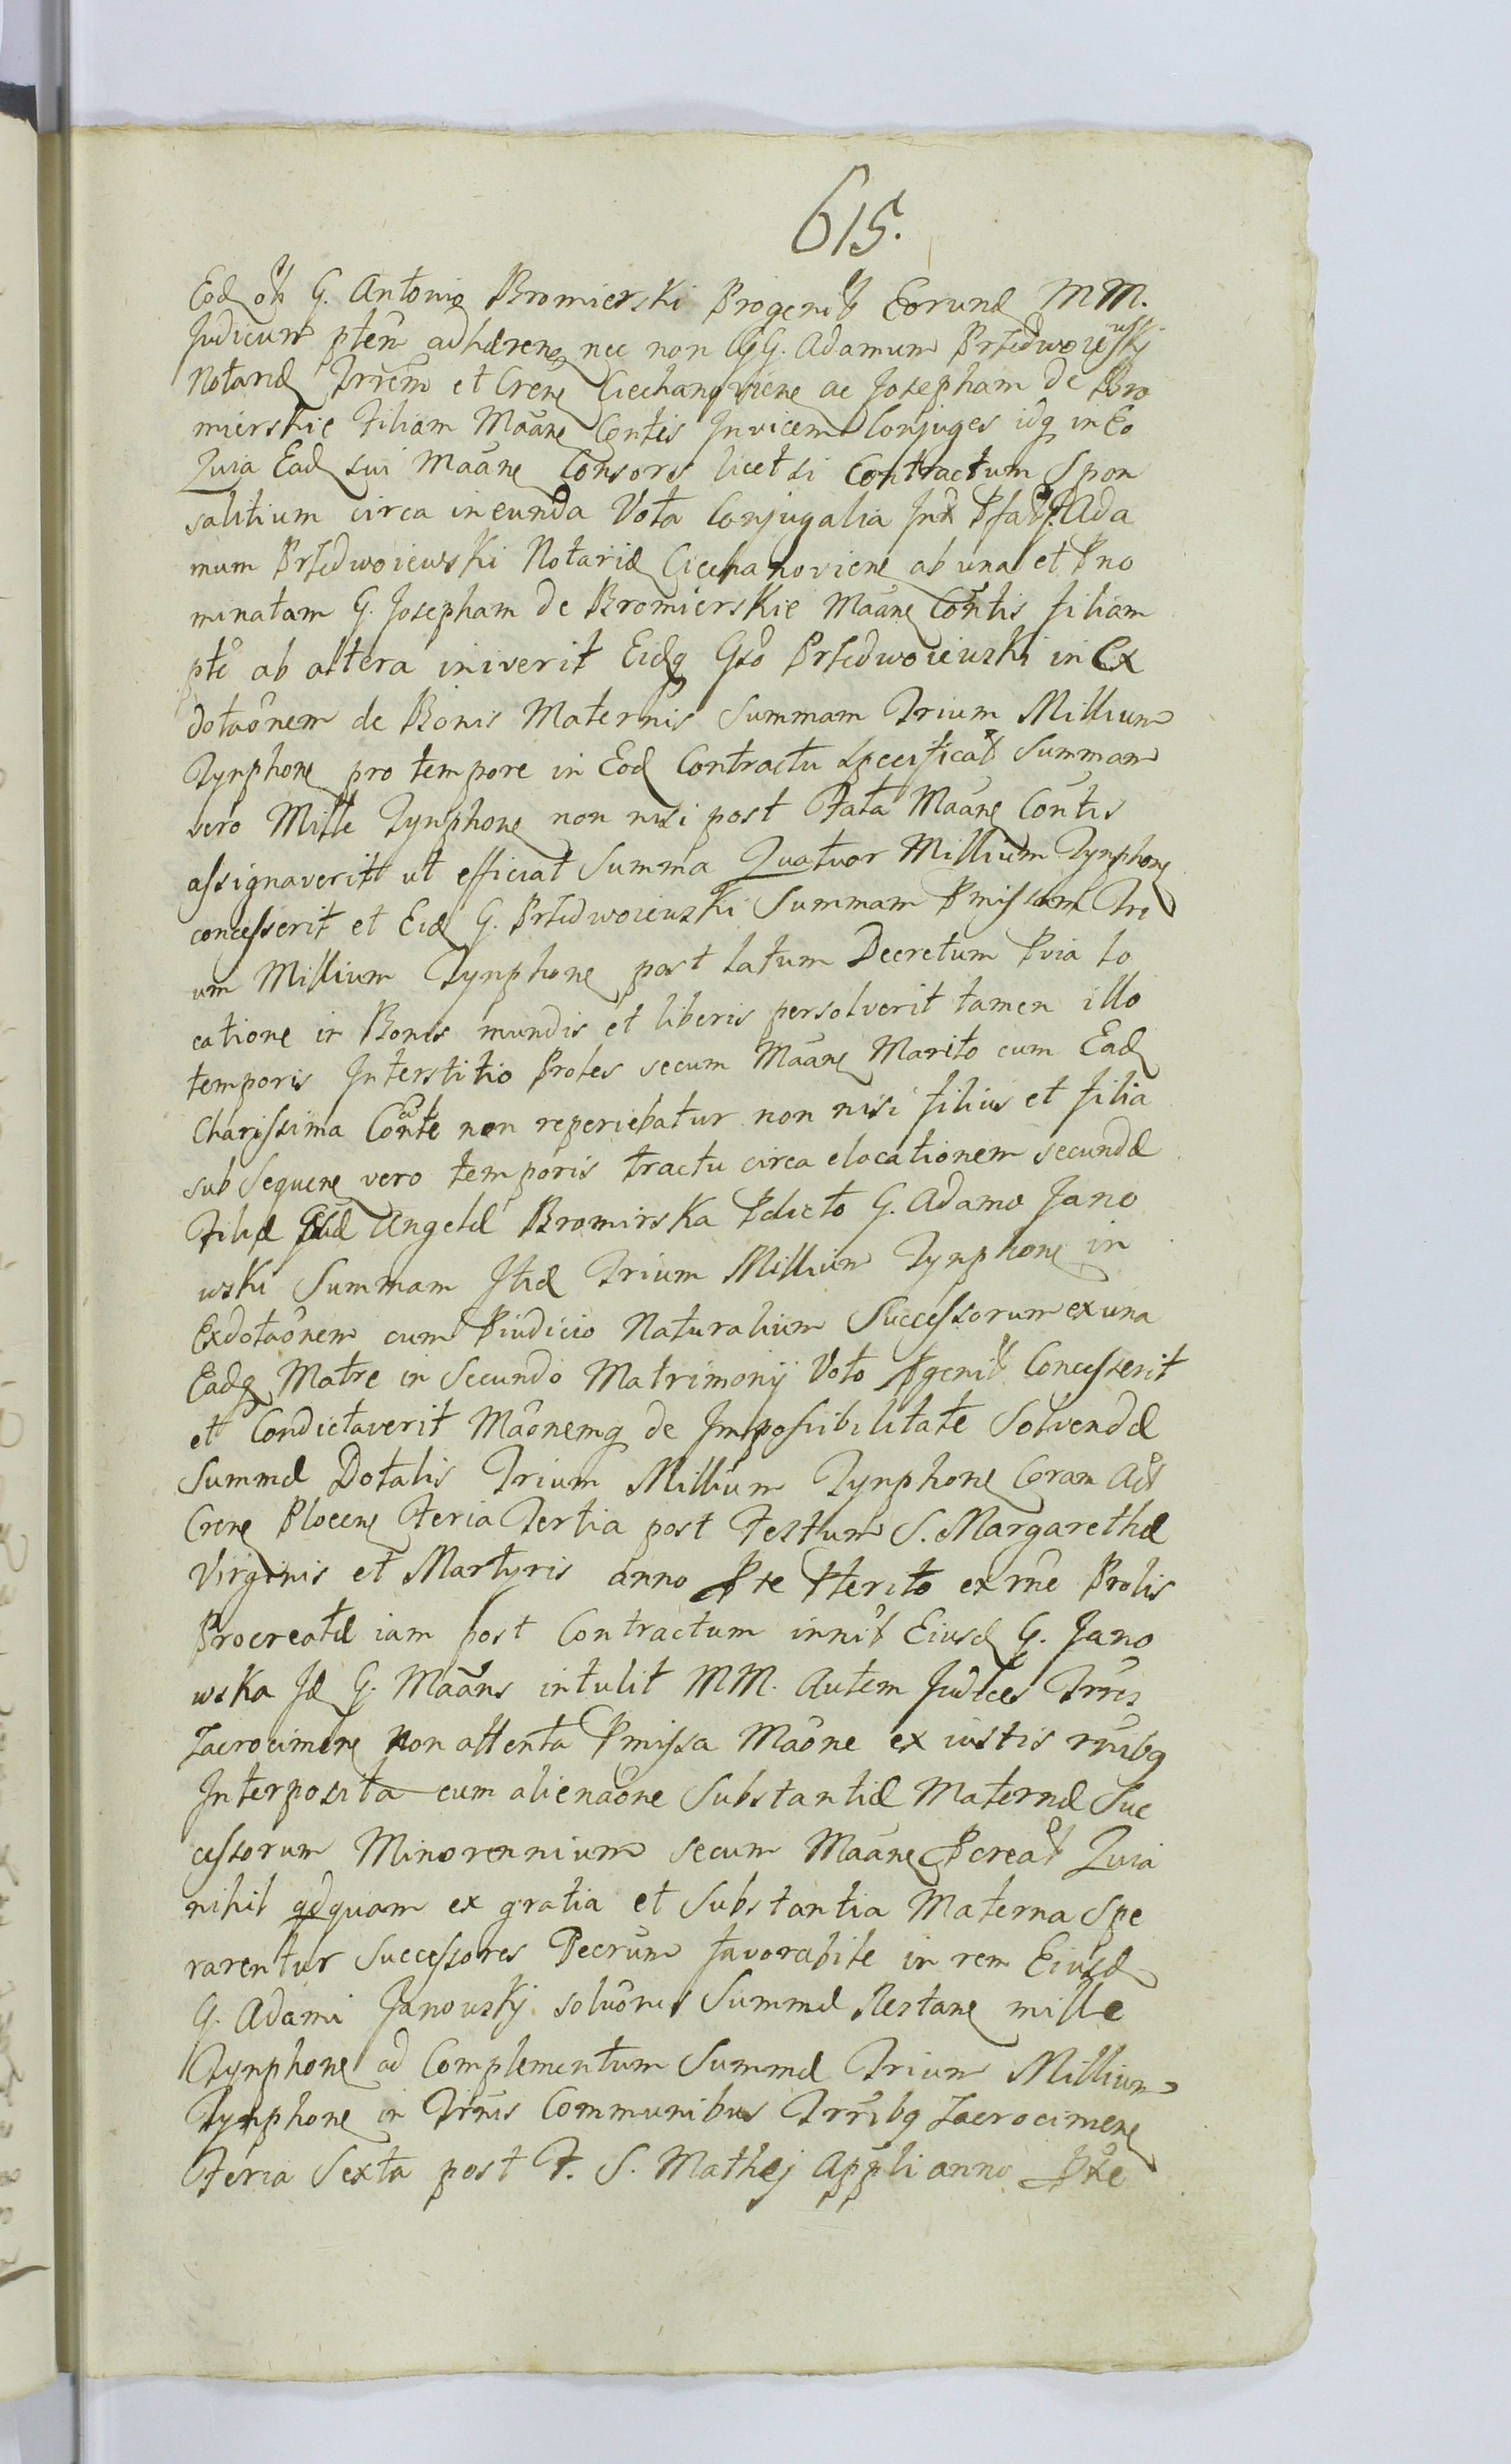 615.
Eod G. Antonio Bromierski Progenit Eorund MM.
Judicum ptem adhaeren nec non GG. Adamum Przedwoiewskj
Notariu Trrem et Cren Ciechanovien ac Josepham de Bro
mierskie Filiam Maan Contis Invicem Conjuges idq in Eo
Quia Ead sui Maan Consors licet si Contractum Spon
salitium circa ineunda Vota Conjugalia Int Pfat G. Ada
mum Przedwoiewski Notariu Ciechanovien ab una et Pno
minatam G. Josepham de Bromierskie Maan Contis filiam
pte ab altera iniverit Eidq Gso Przedwoiewski in Ex
dotaonem de Bonis Maternis Summam Trium Millium
Tynphon pro tempore in Eod Contractu specificat Summam
vero Mille Tynphon non nisi post Fata Maan Contis
assignaverit ut efficiat Summa Quatuor Millium Tynphon
concesserit et Eid G. Przedwoiewski Summam Pmissam Tri
um Millium Tynphon post latum Decretum Pvia lo
catione in Bonis mundis et liberis persolverit tamen illo
temporis Interstitio Proles secum Maan Marito cum Ead
Charissima Conte non reperiebatur non nisi filius et filia
sub Sequen vero temporis tractu circa elocationem secundae
Filiae Gsae Angelae Bromirska Pdicto G. Adamo Jano
wski Summam Itid Trium Millium Tynphon in
Exdotaonem cum Piudicio Naturalium Successorum ex una
Eadq Matre in Secundo Matrimonij Voto Pgenit Concesserit
et Condictaverit Maonemq de Impossibilitate Solvendae
Summae Dotalis Trium Millium Tynphon Coram Act
Cren Plocen Feria Tertia post Festum S. Margarethae
Virginis et Martyris anno Pte Pterito ex rne Prolis
Procreatae iam post Contractum innit Eiusd G. Jano
wska Id G. Maans intulit MM. Autem Judices Trrs
Zacrocimen non attenta Pmissa Maone ex iustis rnibq
Interposita cum alienaone Substantiae Maternae Suc
cessorum Minorennium secum Maan Pcreat Quia
nihil qdquam ex gratia et Substantia Materna Spe
rarentur Successores Decrum favorabile in rem Eiusd
G. Adami Janowskj soluonis Summae Restan mille
Tynphon ad Complementum Summae Trium Millium
Tynphon in Trnis Communibus Trribq Zacrocimen
Feria Sexta post F. S. Mathej Appli anno Pte